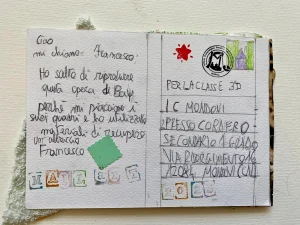 Ciao
mi chiamo: Francesco.
Ho scelto di riprodurre
questa opera di
perché mi piacciono i
suoi quadri e ho utilizzato
materiali di recupero
un abbraccio
Francesco
MAIL ART
PER LA CLASSE 3D
I C MONDOVÌ
PRESSO CORDERO
SECONDARIO 1 GRADO
VIA RISORGIMENTO
12084 MONDOVÌ (CN)